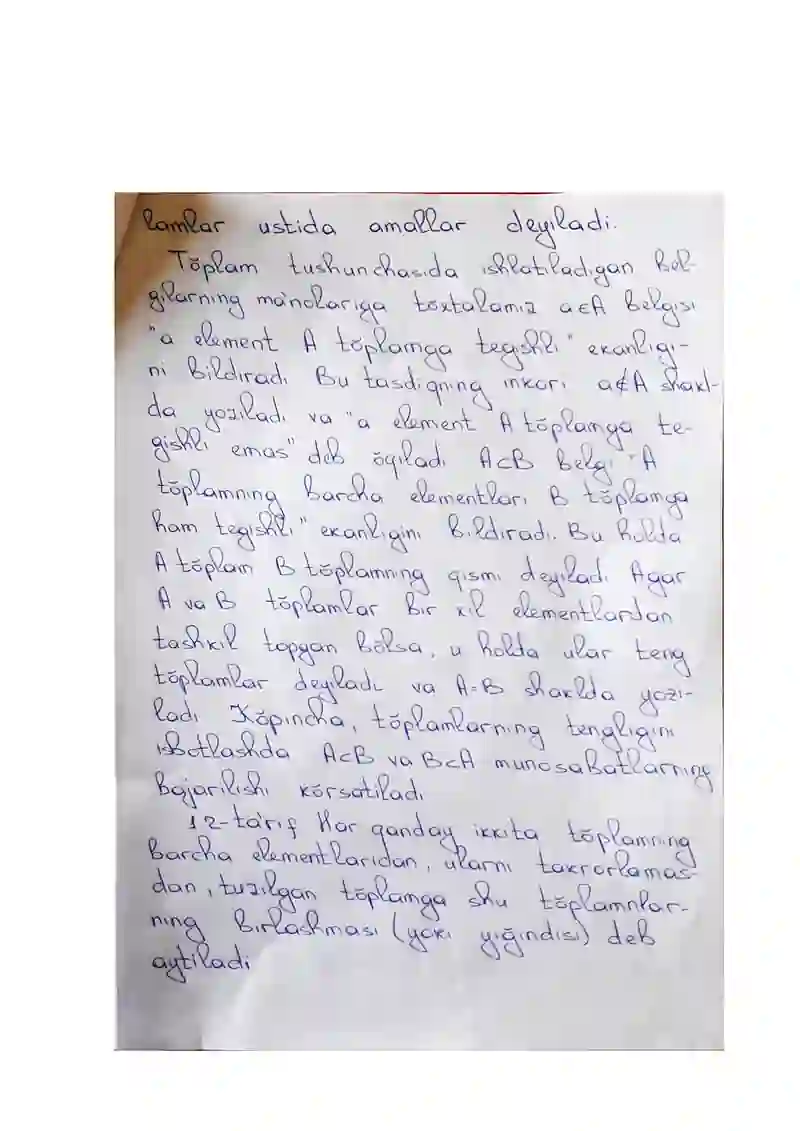 lamlar ustida amallar deyiladi.
Tõplam tushunchasida ishlatiladigan bel-
gilarning ma'nolariga tõxtalamiz a∈A belgisi
"a element A tõplamga tegishli" ekanligi-
ni bildiradi Bu tasdiqning inkori a∉A shakl-
da yoziladi va "a element A tõplamga te-
gishli emas" deb õqiladi A⊂B belgi "A
tõplamning barcha elementlari B tõplamga
ham tegishli" ekanligini bildiradi. Bu holda
A tõplam B tõplamning qismi deyiladi Agar
A va B tõplamlar bir xil elementlardan
tashkil topgan bõlsa, u holda ular teng
tõplamlar deyiladi va A=B shaklda yozi-
ladi Kõpincha, tõplamlarning tengligini
isbotlashda A⊂B va B⊂A munosabatlarning
bajarilishi kõrsatiladi
12-ta'rif Har qanday ikkita tõplamning
barcha elementlaridan, ularni takrorlamas-
dan, tuzilgan tõplamga shu tõplamnlar-
ning birlashmasi (yoki yiğindisi) deb
aytiladi